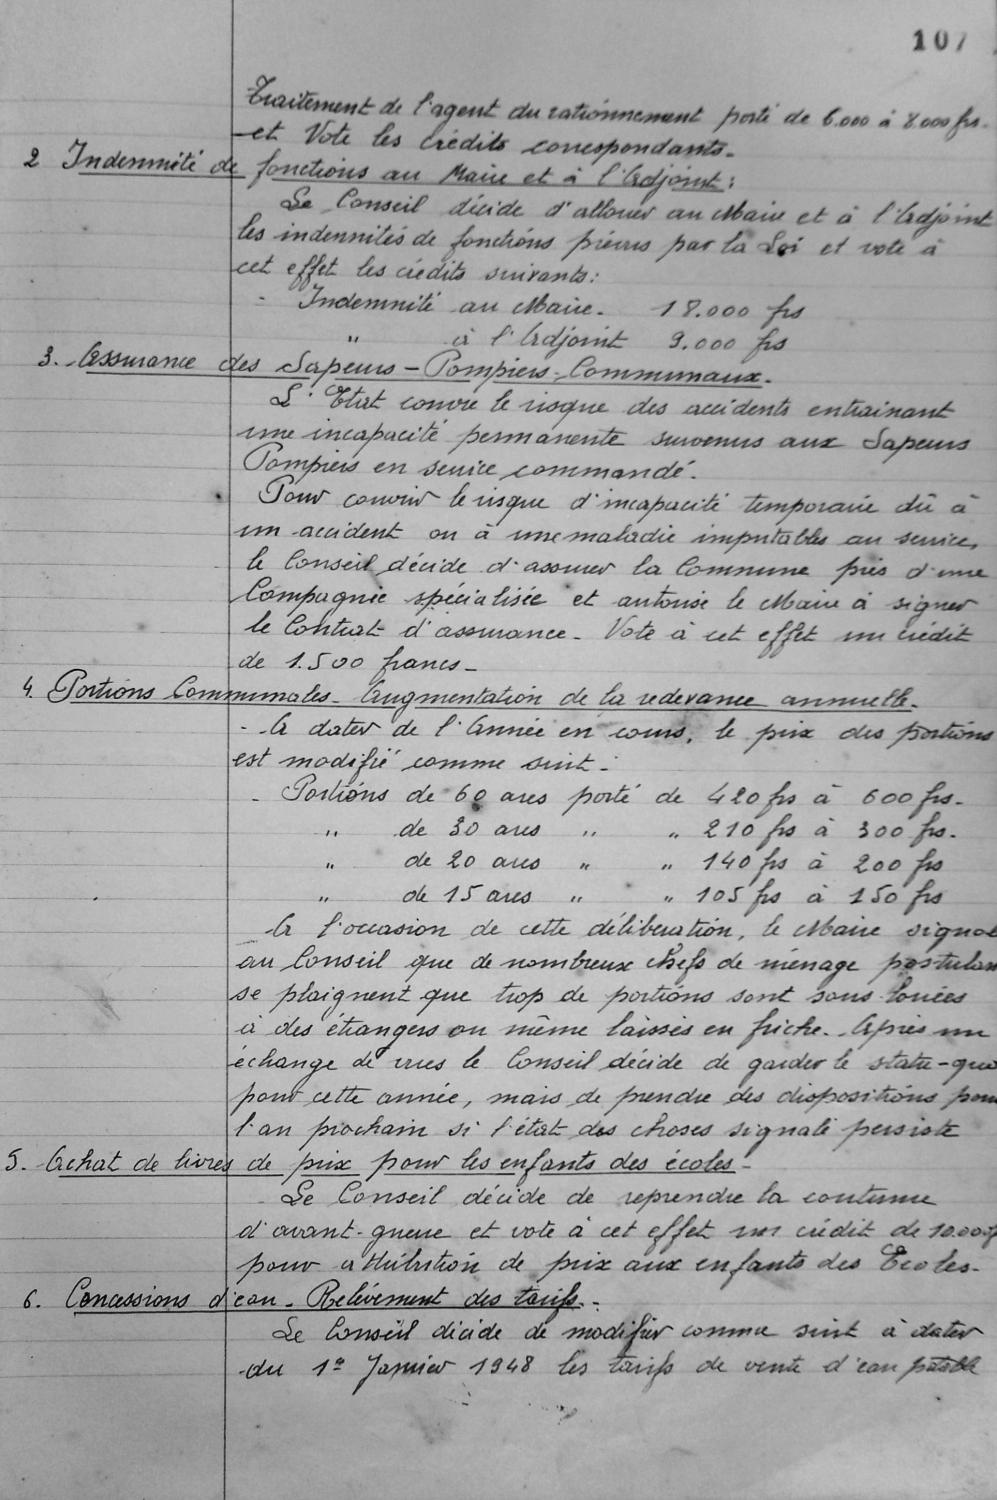 107
Traitement de l'agent du rationnement porté de 6.000 à 8.000 frs.
et Vote les crédits correspondants.
2 Indemnité de fonctions au Maire et à l'Adjoint :
Le Conseil décide d'allouer au Maire et à l'Adjoint
les indemnités de fonctions prévus par la Loi et vote à
cet effet les crédits suivants :
- Indemnité au Maire. 18.000 frs
" à l'Adjoint 9.000 frs
3. Assurance des Sapeurs-Pompiers-Communaux.
L'Etat couvre le risque des accidents entrainant
une incapacité permanente survenus aux Sapeurs
Pompiers en service commandé.
Pour couvrir le risque d'incapacité temporaire dû à
un accident ou à une maladie imputables au service,
le Conseil décide d'assurer la Commune près d'une
Compagnie spécialisée et autorise le Maire à signer
le Contrat d'assurance. Vote à cet effet un crédit
de 1.500 francs.
4. Portions Communales. Augmentation de la redevance annuelle.
- A dater de l'Année en cours, le prix des portions
est modifié comme suit :
- Portions de 60 ares porté de 420 frs à 600 frs.
" de 30 ares " " 210 frs à 300 frs.
" de 20 ares " " 140 frs à 200 frs
" de 15 ares " " 105 frs à 150 frs
A l'occasion de cette délibération, le Maire signale
au Conseil que de nombreux chefs de ménage postulan
se plaignent que trop de portions sont sous louées
à des étrangers ou même laissés en friche. Après un
échange de vues le Conseil décide de garder le statu-quo
pour cette année, mais de prendre des dispositions pour
l'an prochain si l'état des choses signalé persiste
5. Achat de livres de prix pour les enfants des écoles -
Le Conseil décide de reprendre la coutume
d'avant-guerre et vote à cet effet un crédit de 10.000 f
pour attribution de prix aux enfants des Ecoles.
6. Concessions d'eau. Relèvement des tarifs.-
Le Conseil décide de modifier comme suit à dater
du 1er Janvier 1948 les tarifs de vente d'eau potable